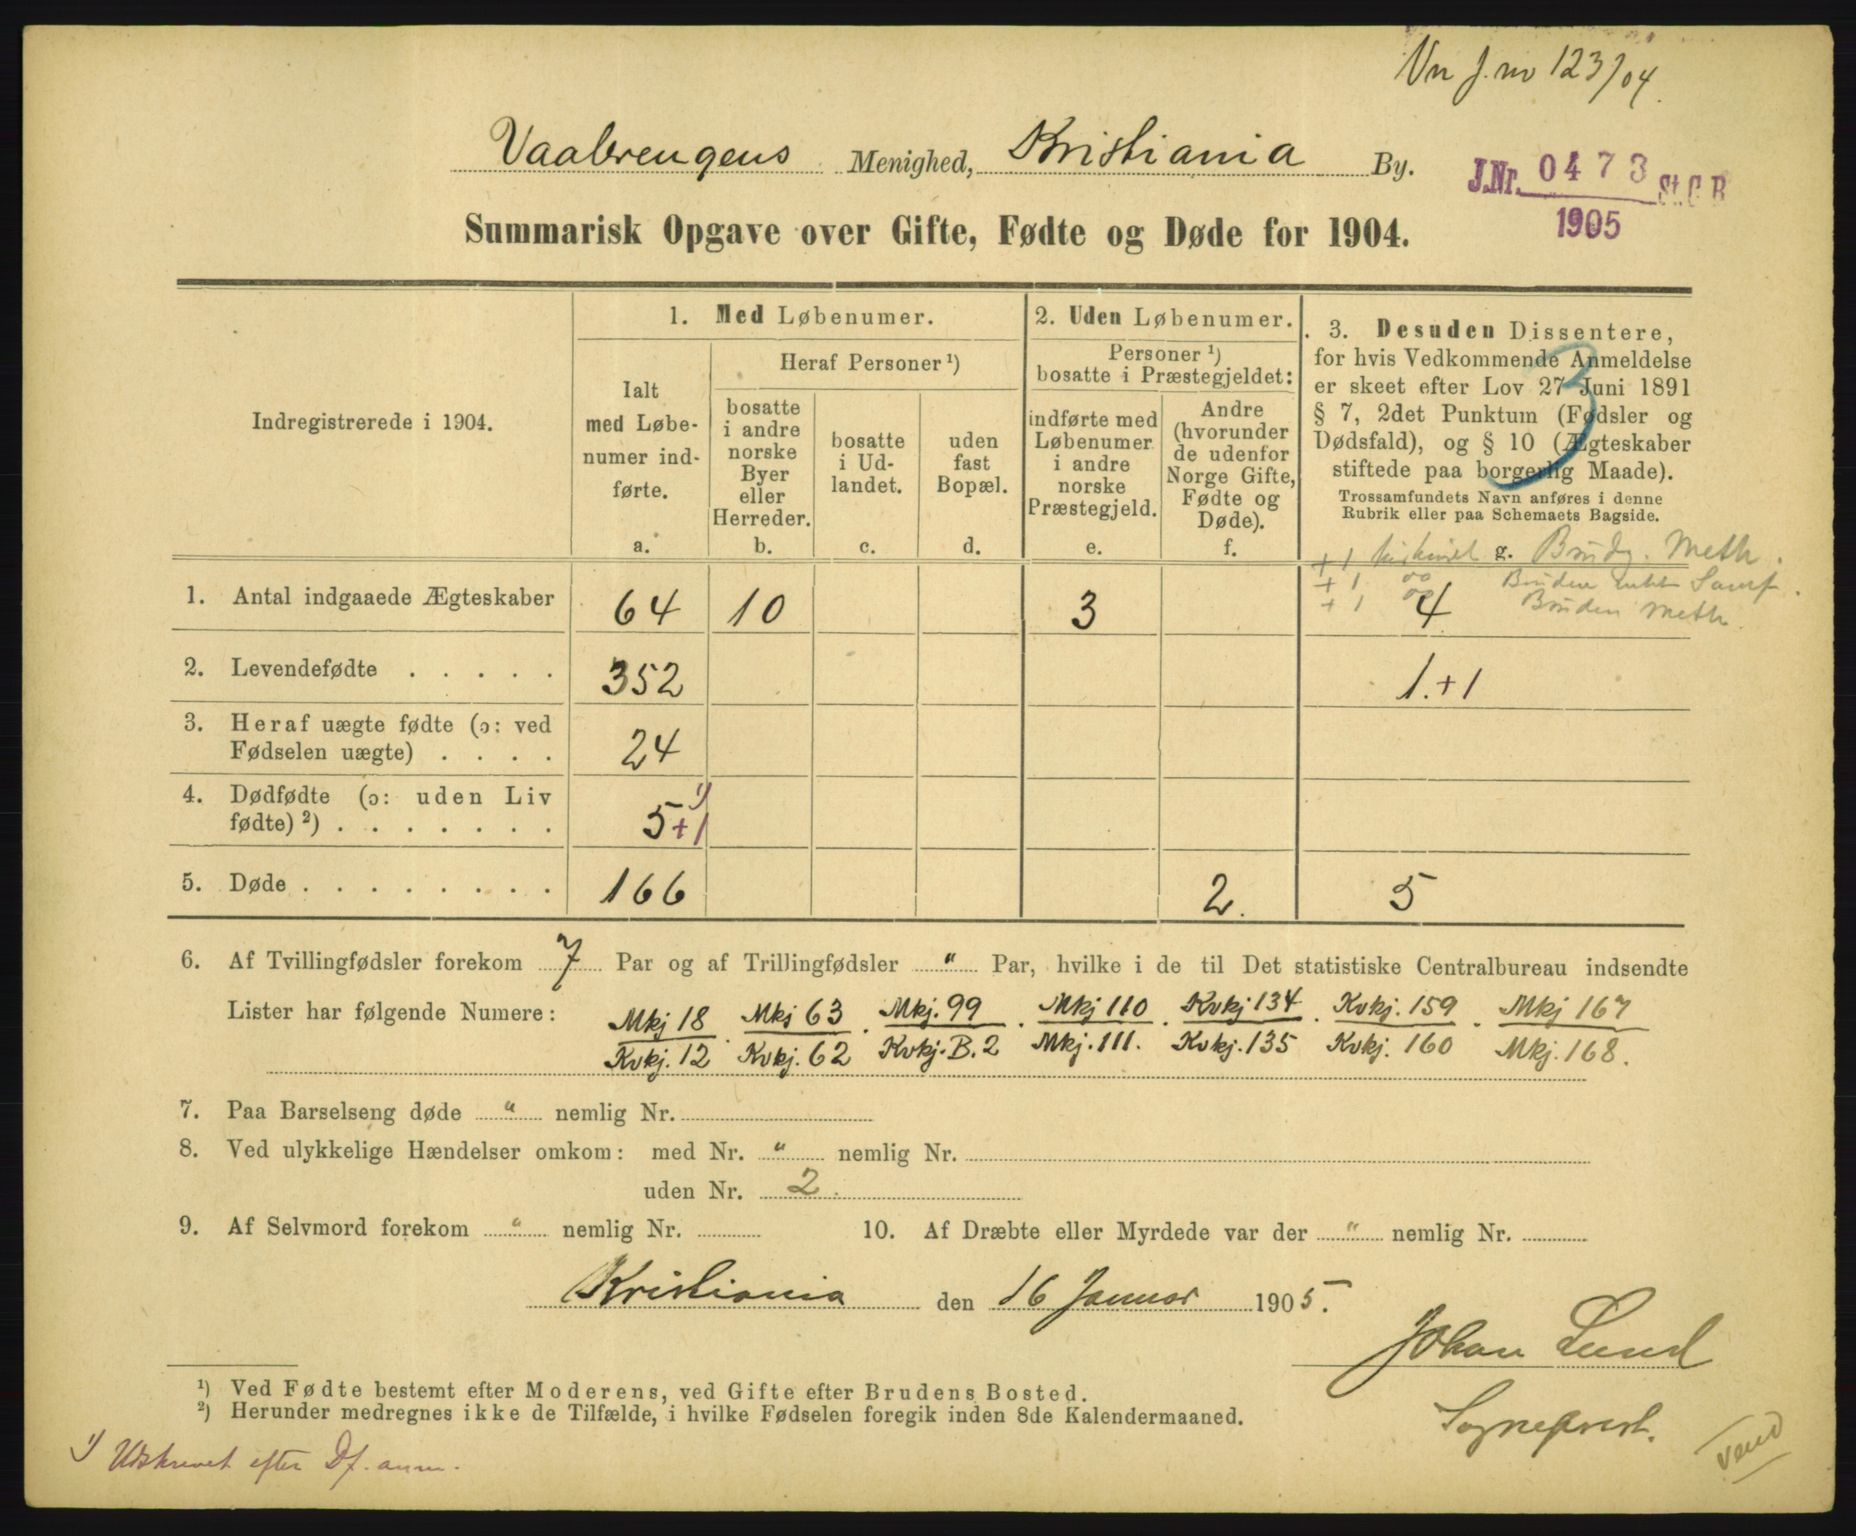 Vn J.no 123/04.
Vaalerengens Menighed, Kristiania By.
J.Nr. 0473 St.C.B.
1905
Summarisk Opgave over Gifte, Fødte og Døde for 1904.
Indregistrerede i 1904.
1. Med Løbenumer.
Ialt med Løbe-numer ind-førte.
a.
Heraf Personer ¹)
bosatte i andre norske Byer eller Herreder.
b.
bosatte i Ud-landet.
c.
uden fast Bopæl.
d.
2. Uden Løbenumer.
Personer ¹) bosatte i Præstegjeldet:
indførte med Løbenumer i andre norske Præstegjeld.
e.
Andre (hvorunder de udenfor Norge Gifte, Fødte og Døde).
f.
3. Desuden Dissentere,
for hvis Vedkommende Anmeldelse
er skeet efter Lov 27 Juni 1891
§ 7, 2det Punktum (Fødsler og
Dødsfald), og § 10 (Ægteskaber
stiftede paa borgerlig Maade).
Trossamfundets Navn anføres i denne
Rubrik eller paa Schemaets Bagside.
3
+ 1 g. Brudg. Meth.
+ 1 oo Bruden Samf.
+ 1 oo Bruden Meth.
1. Antal indgaaede Ægteskaber 64 10 3 4
2. Levendefødte . . . . . 352 1.+1
3. Heraf uægte fødte (ɔ: ved
Fødselen uægte) . . . . 24
4. Dødfødte (ɔ: uden Liv
fødte) ²) . . . . . . . 5+1 ¹)
5. Døde . . . . . . . . 166 2. 5
6. Af Tvillingfødsler forekom 7 Par og af Trillingfødsler " Par, hvilke i de til Det statistiske Centralbureau indsendte
Lister har følgende Numere: Mkj 18 . Mkj 63 . Mkj. 99 . Mkj 110 . Kvkj 134 . Kvkj. 159 . Mkj 167
Kvkj. 12 Kvkj. 62 Kvkj. B. 2 Mkj. 111. Kvkj. 135 Kvkj. 160 Mkj. 168.
7. Paa Barselseng døde " nemlig Nr.
8. Ved ulykkelige Hændelser omkom: med Nr. " nemlig Nr.
uden Nr. 2.
9. Af Selvmord forekom " nemlig Nr. 10. Af Dræbte eller Myrdede var der " nemlig Nr.
Kristiania den 16 Januar 1905.
Johan Lund
Sogneprest.
¹) Ved Fødte bestemt efter Moderens, ved Gifte efter Brudens Bosted.
²) Herunder medregnes ikke de Tilfælde, i hvilke Fødselen foregik inden 8de Kalendermaaned.
¹) Udskrevet efter Df. anm.
Vend